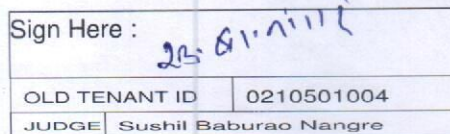 Sign Here :
OLD TENANT ID 0210501004
JUDGE Sushil Baburao Nangre